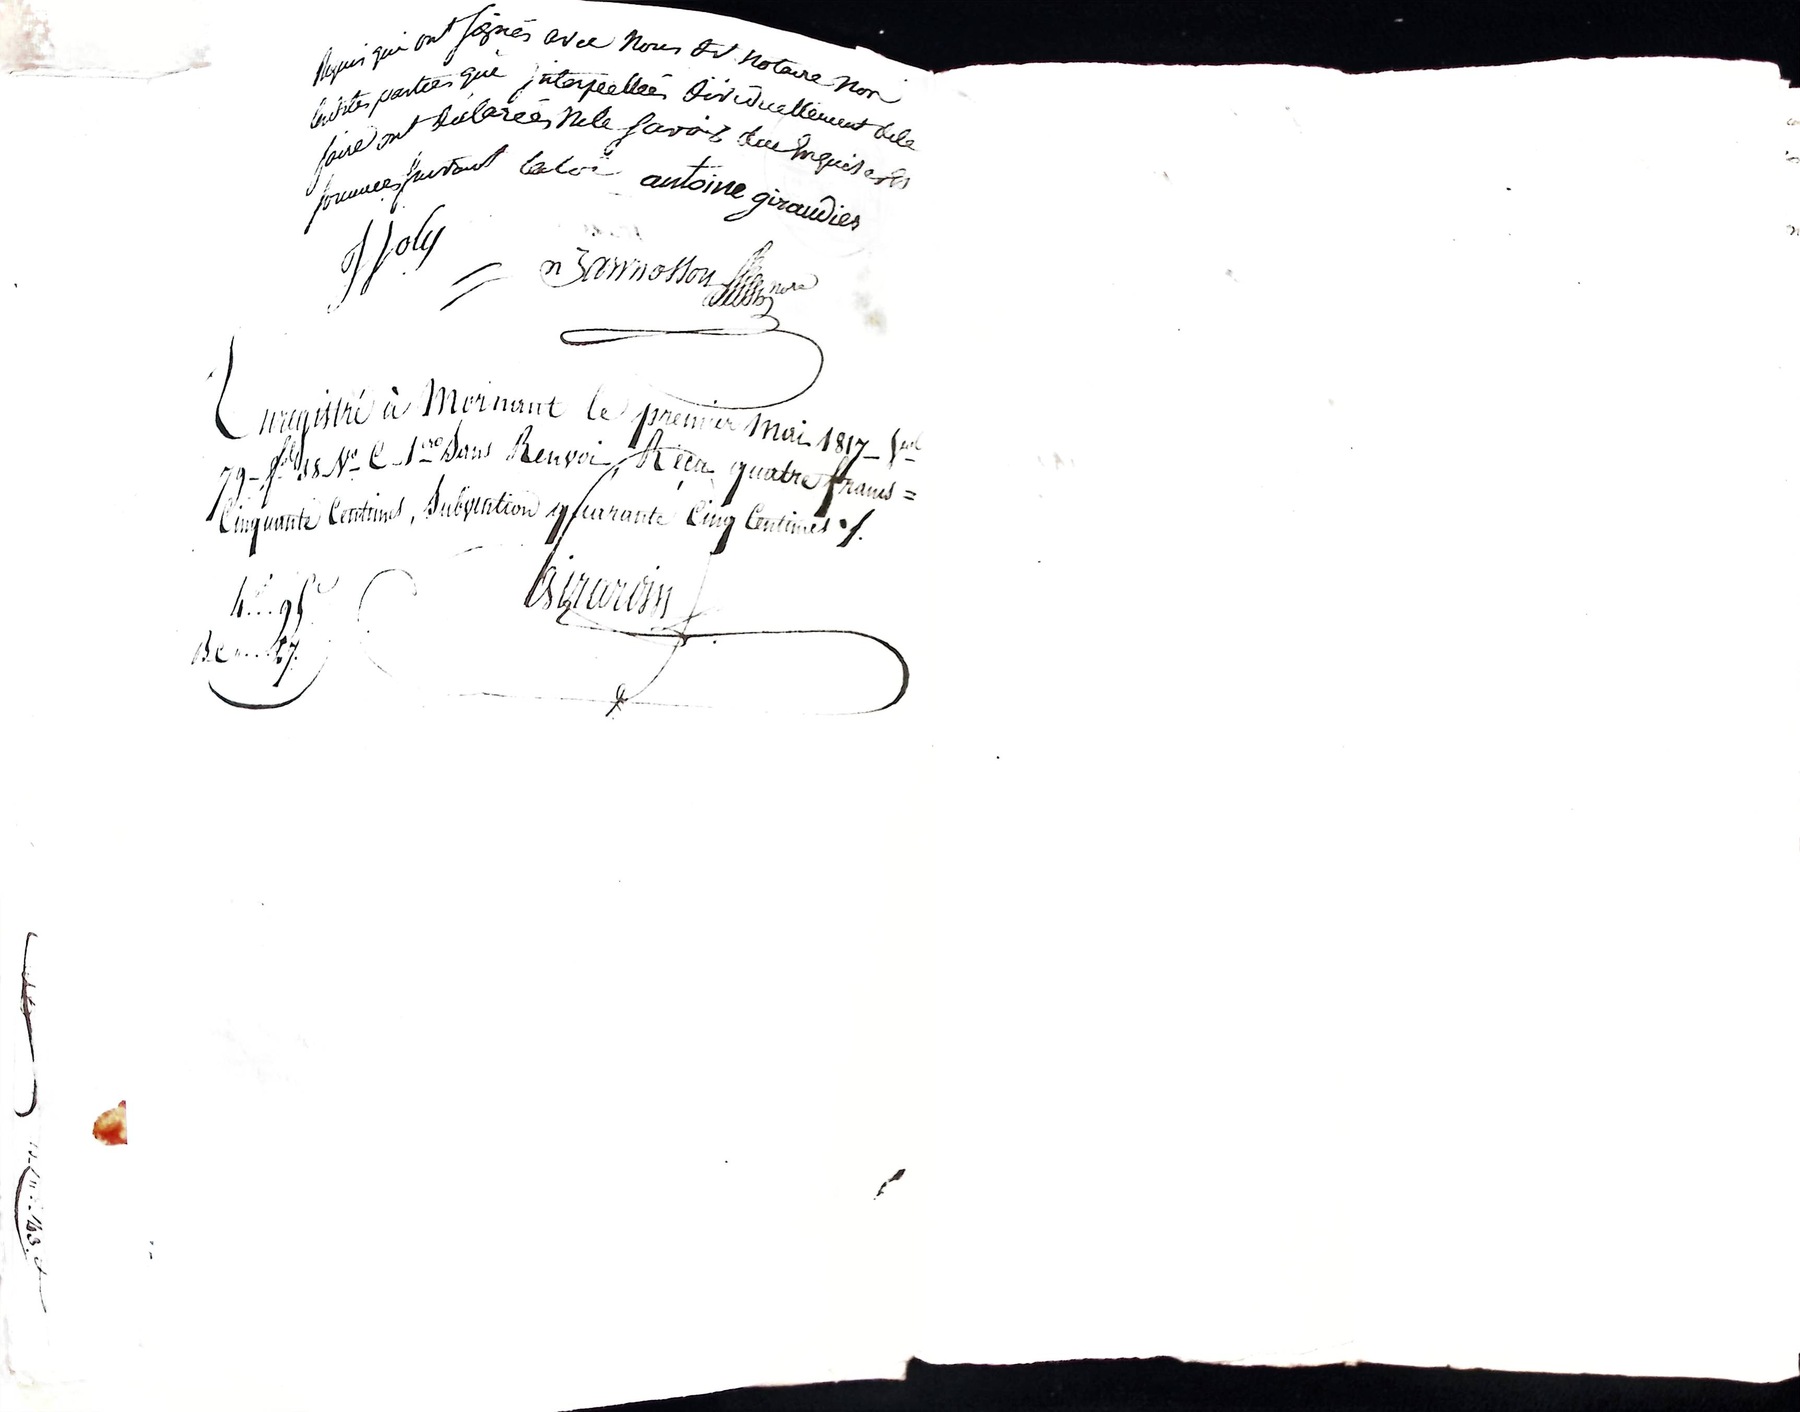 Requis qui ont signés avec Nous dt. notaire Non
lesdites parties que interpellées dividuellement dele
faire ont déclarées Nele Savoir due Enquis
sommées suivant laloi antoine giraudier
JJoly
n Jannosson nore
Enregistré à Mornant le premier Mai 1817 fol
79 18 No C 1re Sans Renvoi, Reçu quatre francs =
Cinquante Centimes, Subvention quarante Cinq Centimes
Girardin
4f.. 95c